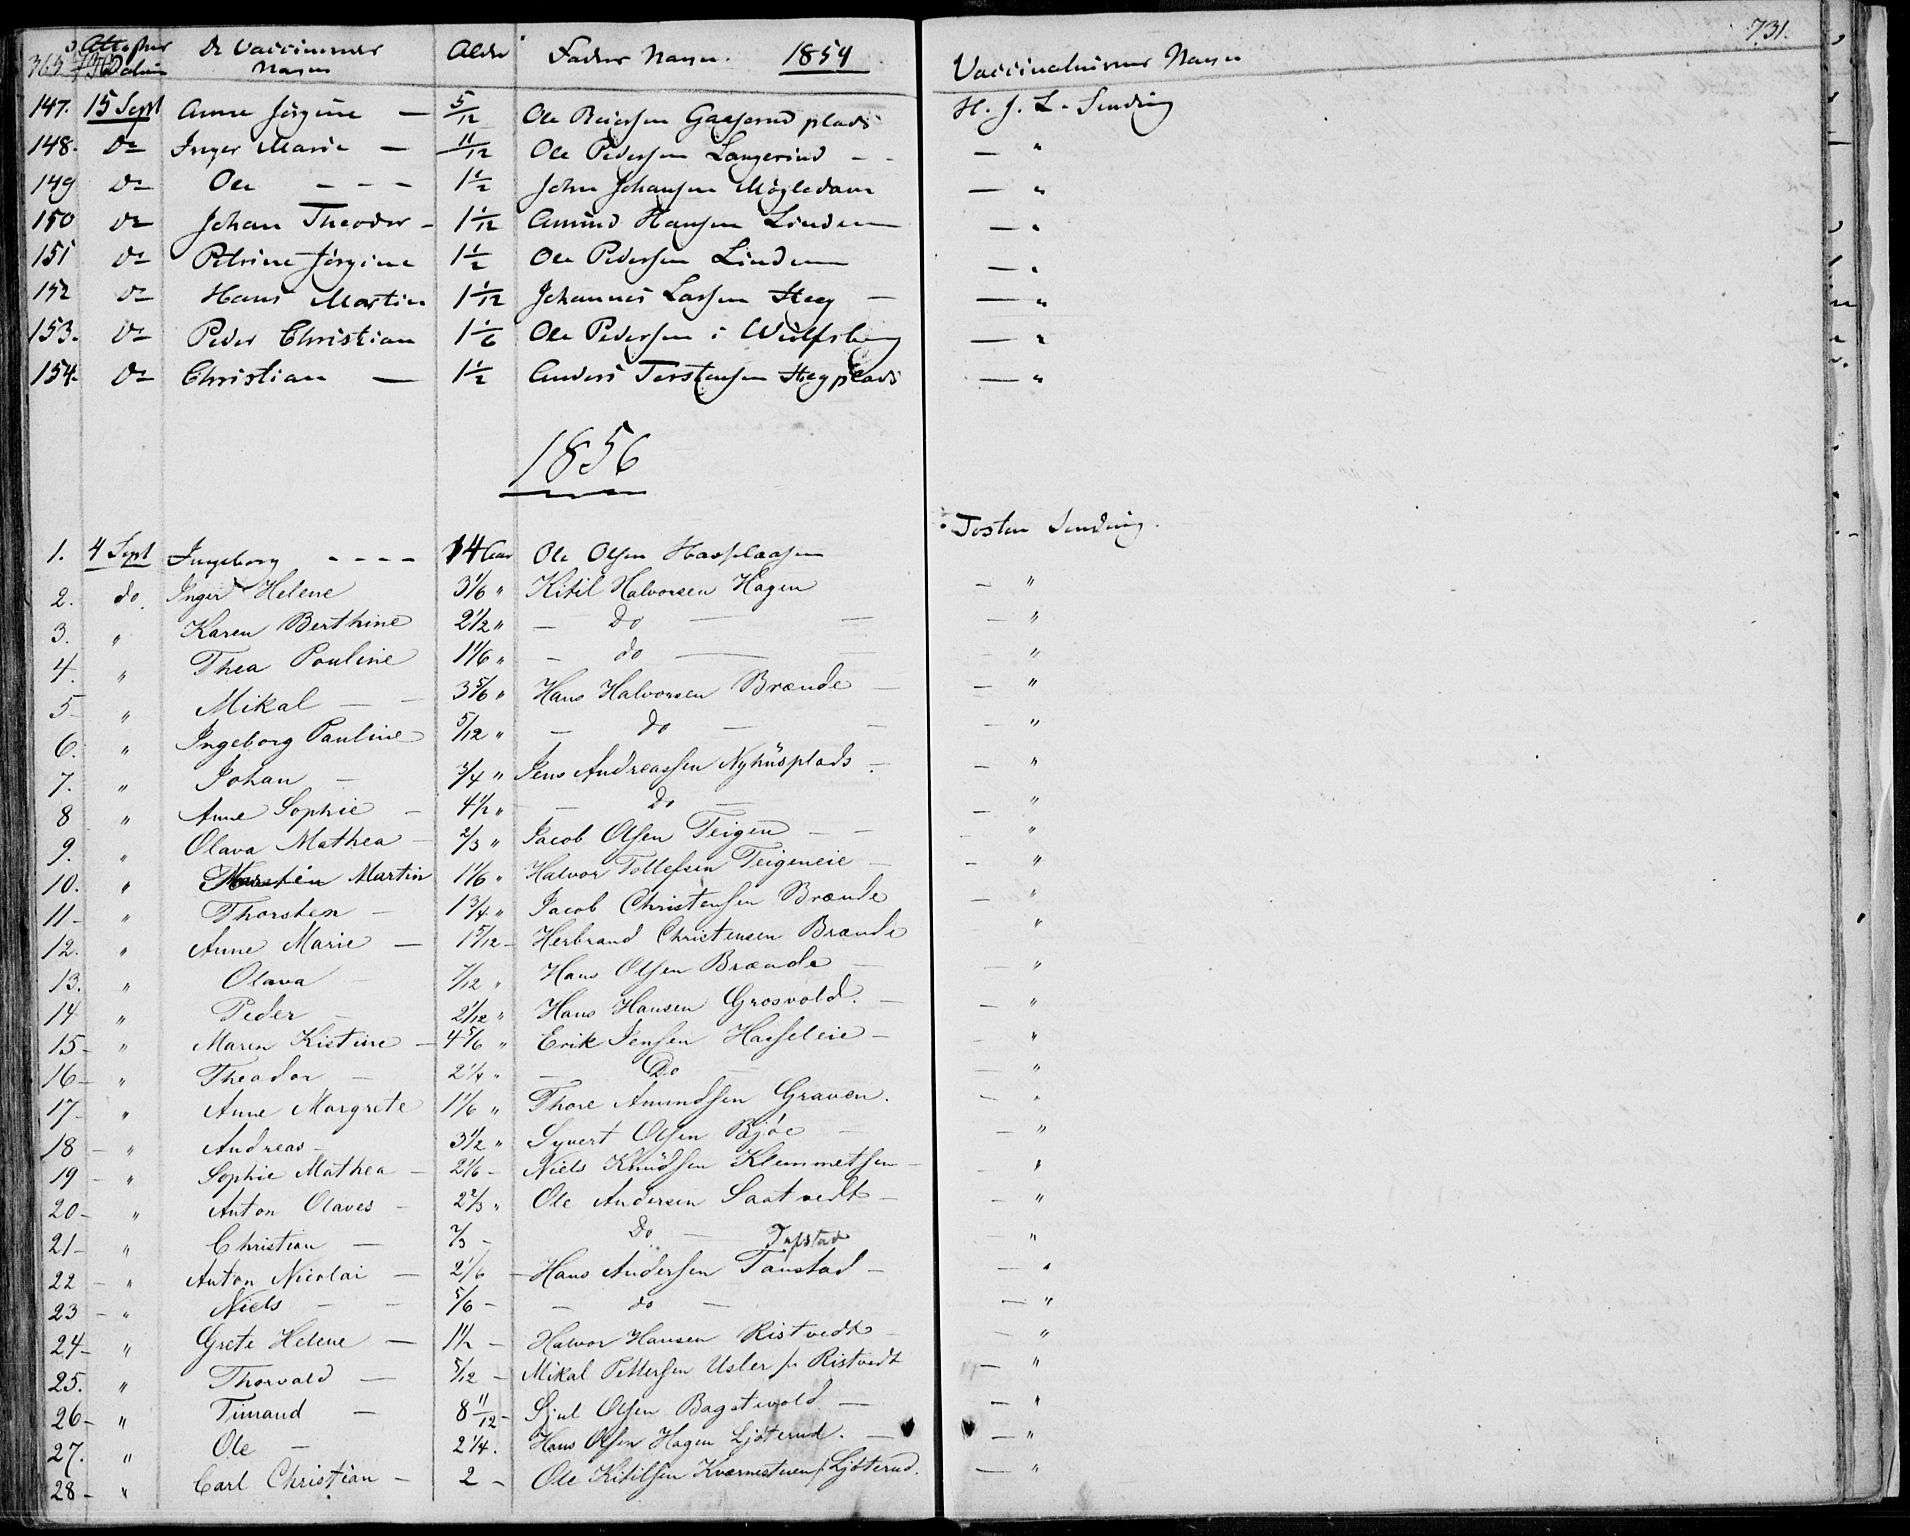 365 730 Attester Datum De Vaccinernes Navne Alder Fadrens Navne. 1854 Vaccinateurernes Navne 731.
147. 15 Sept Anne Jørgine — 5/12 Ole Gaaserud plads H. J. L. Sending
148. Do Inger Marie — 11/12 Ole Pedersen Langerud - - — "
149 Do Ole - - - 1 1/2 John Johansen Mögledam — "
150 Do Johan Theodor - 1 1/12 Amund Hansen Linden — "
151 Do Petrine Jörgine 1 1/2 Ole Pedersen Linden — "
152 Do Hans Martin 1 1/12 Johannes Larsen Heeg — — "
153. Do Peder Christian 1 1/6 Ole Pedersen i Wulfsberg — "
154. Do Christian — 1 1/2 Anders Torstensen Heeg plads — "
1856
1. 4 Sept Ingeborg - - - - 14 Aar Ole Olsen Torsten Sending.
2. do. Inger Helene 3 1/6 " Kitil Halvorsen Hagen — "
3. " Karen Berthine 2 1/2 " — Do — — — "
4. " Thea Pouline 1 1/6 " — do — — — "
5 " Mikal — — 3 5/6 " Hans Halvorsen Brænde — — "
6. " Ingeborg Pauline 5/12 " — do — — — "
7. " Johan — 3/4 " Jens Andreassen Nyhusplads - — "
8 " Anne Sophie — 4 1/2 " — Do — — "
9. " Olava Mathea — 2/3 " Jacob Olsen Teigen — — "
10. " Martin 1 1/6 " Halvor Tollefsen Teigeneie — — "
11- " Thorsten — 1 3/4 " Jacob Christensen Brænde — "
12. " Anne Marie — 1 5/12 - Herbrand Christensen Brænde "
13. " Olava — 7/12 " Hans Olsen Brænde — — "
14 " Peder — 2 1/12 " Hans Hansen Grosvold. — — "
15- " Maren Kistine — 4 5/6 " Erik Jensen Hasseleie — — "
16- " Theodor — 2 1/4 " — Do — — "
17- " Anne Margrete 1 1/6 " Thore Amundsen Graven. - "
18 - " Andreas - 3 1/2 " Syvert Olsen Bjöe — — "
19 - " Sophie Mathea — 2 1/6 - Niels Knudsen Klemmetsen — — "
20- " Anton Olaves - 2 2/3 " Ole Andersen Saatvedt — — "
21- " Christian — 2/3 - Do — Tufstad — "
22 - " Anton Nicolai — 2 1/6 — Hans Andersen Taustad — — "
23 - " Niels — — 5/6 - — do — — "
24- " Grete Helene — 1 1/2 — Halvor Hansen Ristvedt — — "
25. " Thorvald — 5/12 — Mikal Pettersen Usler p. Ristvedt — "
26- " Timand — 8 11/12 - Sjul Olsen Bagstevold — — "
27. " Ole — 2 1/4. Hans Olsen Hagen Ljöterud. — — "
28- " Carl Christian — 2 - Ole Kitilsen Kværnestuen p. Ljöterud. — "